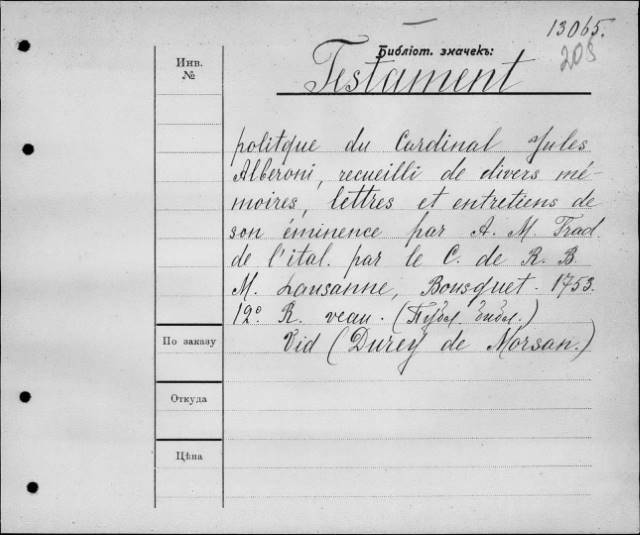 13065.
203
Библіот. значекъ:
Инв.
№
Testament
politque du Cardinal Jules
Alberoni, recueilli de divers mé-
moires, lettres et entretiens de
son éminence par A. M. Trad
de l'ital. par le C. de R. B.
M. Lausanne, Bousquet. 1753.
12º R. veau. (Публ. библ.)
Vid (Durey de Morsan.)
По заказу
Откуда
Цѣна